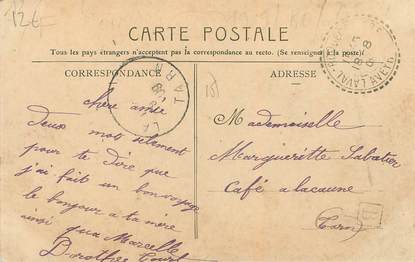 12E
CARTE POSTALE
Tous les pays étrangers n'acceptent pas la correspondance au recto. (Se renseigner à la poste)
CORRESPONDANCE
ADRESSE
TARN
chère amie
Deux mots selement
pour te Dire que
j'ai fait un bon voyage
le bonjour a ta mère
ainsi qua Marcelle
Dorothée
Mademoiselle
Marguerittte Sabatier
Café a lacaune
(Tarn)